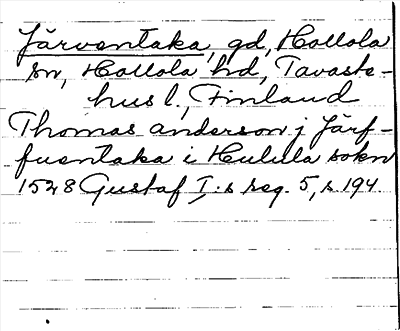 Järventaka, gd, Hollola
sn, Hollola hd, Tavaste-
hus l., Finland
Thomas anderson j Järf-
fuentaka i Hulula sokn
1528 Gustaf I:s reg. 5, s 194.